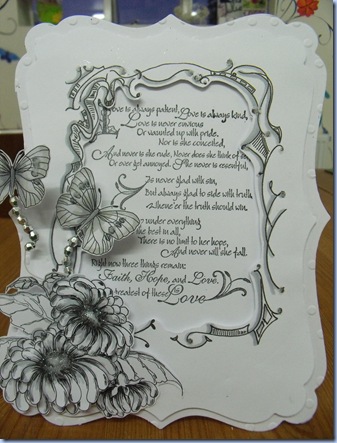 Love is always patient, Love is always kind,
Love is never envious
Or vaunted up with pride.
Nor is she conceited,
And never is she rude, Never does she think of
Or ever get annoyed. She never is resentful,
Is never glad with sin,
But always glad to side with truth
Whene'er the truth should win.
under everything
the best in all,
There is no limit to her hope,
And never will she fall.
Right now three things remain:
Faith, Hope, and Love.
greatest of these is Love